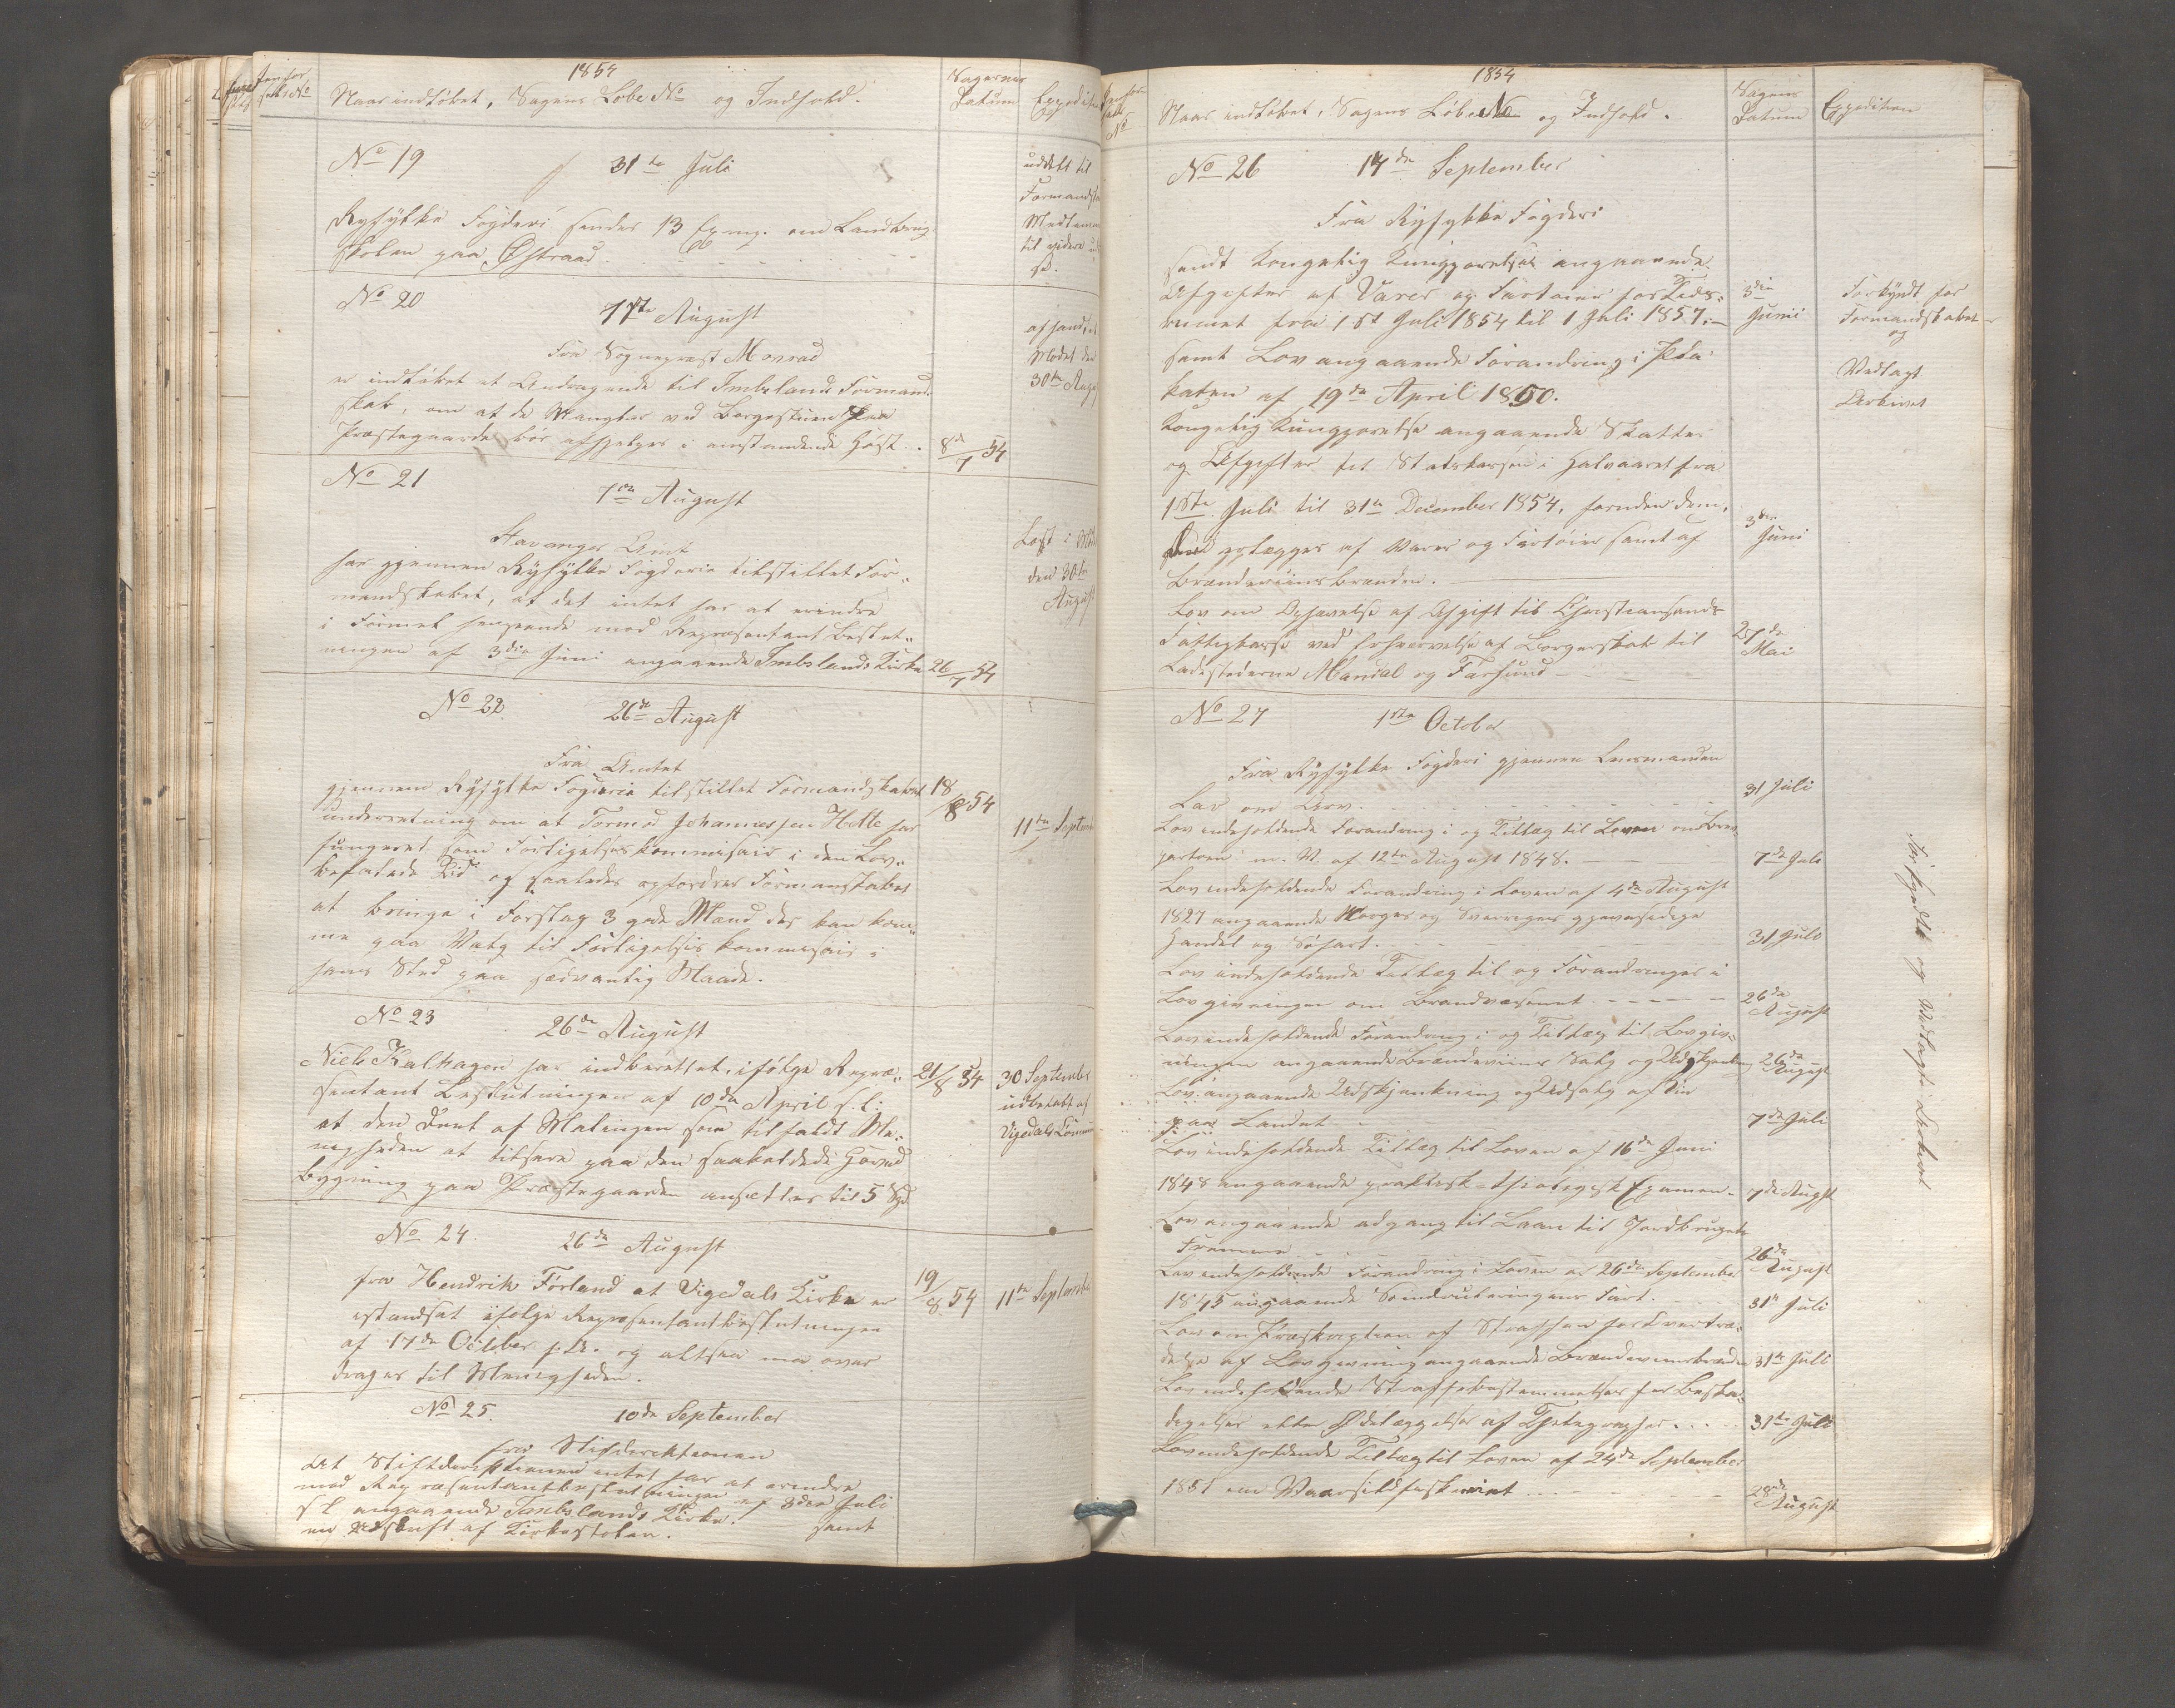 1854
Naar indløbet, Sagens Løbe No og Indhold.
Sagernes Datum
Expedition
No 19 31te Juli
Ryfylke Fogderi sender 13 Expmp. om Landbrug-
skolen paa Østraad.
uddelt til
Formandsk
Medlemme
til videre ud
No 20 7de August
Fra Sognepræst Monrad
er indløbet et Andragende til Imbslands Formand-
skab, om at de Mangler ved Borgestuen paa
Præstegaarden bør afhjelpes i anstaaende Høst.
8de/7 54
afhand.
Mødet den
30te Aug
No 21 7de August
Stavanger Amt
har gjennem Ryfylke Fogderie tilstillet For-
mandskabet, at det intet har at erindre
i Formel henseende mod Repræsentant Beslut-
ningen af 3die Juni angaaende Imbslands Kirke
26/7 54
Læst i Møde
den 30te
August
No 22. 26de August
Fra Amtet
gjennem Ryfylke Fogderie tilstillet Formandskabet
Underretning om at Tormod Johannessen Hette har
fungeret som Forligelseskommisair i den Lov-
befalede Tid og saaledes opfordrer Formanskabet
at bringe i Forslag 3 gode Mænd der kan kom-
me paa Valg til Forligelsis kommisair i
hans Sted paa sædvanlig Maade.
18/8 54
11te Septemb
No 23 26de August
Niels Kalhagen har indberettet, ifølge Repræ-
sentant Beslutningen af 10de April s. l:
at den Deel af Malingen som tilfaldt Me-
nigheden at tilsvare paa den saakaldede Hoved
bygning paa Præstegaarden ansættes til 5 Spd
21/8 54
30 September
udbetalt af
Vigedals Kommu
No 24. 26de August
fra Hendrik Førland at Vigedals Kirke er
istandsat ifølge Repræsentantbeslutningen
af 17de October f. A. og altsaa maa over
drages til Menigheden.
19/8 54
11te September
No 25. 10de September
fra Stiftdirektionen
At Stiftdirektionen intet har at erindre
mod Repræsentantbeslutningen af 3die Juli
s l angaaende Imbslands Kirke. samt
en Udskrift af Kirkestolen.
1854
Naar indløbet, Sagens Løbe No og Indhold.
Sagens Datum
Expedition
No 26 14de September
Fra Ryfylke Fogderi
sendt Kongelig Kungjørelse angaaende
Afgifter af Varer og Fartøier for Tids-
rummet fra 1st Juli 1854 til 1 Juli 1857.-
samt Lov angaaende Forandring i Pla-
katen af 19de April 1850.
Kongelig Kungjørelse angaaende Skatter
og Afgifter til Statskassen i Halvaaret fra
1ste Juli til 31te December 1854, foruden dem,
der erlægges af Varer og Fartøier samt af
Brændeviinsbrænden.
Lov om Ophævelse af Afgift til Christiansands
Fattigkasse ved Erhvervelse af Borgerskab til
Ladestederne Mandal og Farsund
3die
Junii
3die
Juni
27de
Mai
Forkyndt for
Formandskabet
og
Vedlagt
Arkivet
No 27 1ste October
Fra Ryfylke Fogderi gjennem Lensmanden
Lov om Arv.
31 Juli
Lov indeholdende Forandring i og Tillæg til Loven om Bræn
portoen m. V. af 12te August 1848.
7de Juli
Lov indeholdende Forandring i Loven af 4de August
1827 angaaende Norges og Sverriges gjensidige
Handel og Søfart.
31 Juli
Lov indeholdende Tillæg til og Forandringer i
Lovgivningen om Brandvæsenet
26de
August
Lov indeholdende Forandring i og Tillæg til Lovgiv-
ningen angaaende Brændeviins Salg og Udskjænkn
26de
August
Lov angaaende Udskjænkning og Udsalg af Viin
paa Landet
7de Juli
Lov indeholdende Tillæg til Loven af 16de Juni
1848 angaaende praktisk-theologisk Examen.
7de Augst
Lov angaaende adgang til Laan til Jordbrugets
Fremme
26de
August
Lov indeholdende Forandring i Loven af 26de September
1845 angaaende Snindruteringens Fart.
31te Juli
Lov om Præskription af Straffen for Overtræ-
delse af Lovgivning angaaende Brændeviinsbrænden
31te Juli
Lov indeholdende Straffebestemmelser for Beska-
digelser eller Ødelæggelser af Thelegrapher.
31te Juli
Lov indeholdende Tillæg til Loven af 24de September
1851 om Vaarsildfiskeriet
28de
August
Forkyndt og Vedlagte Archivet